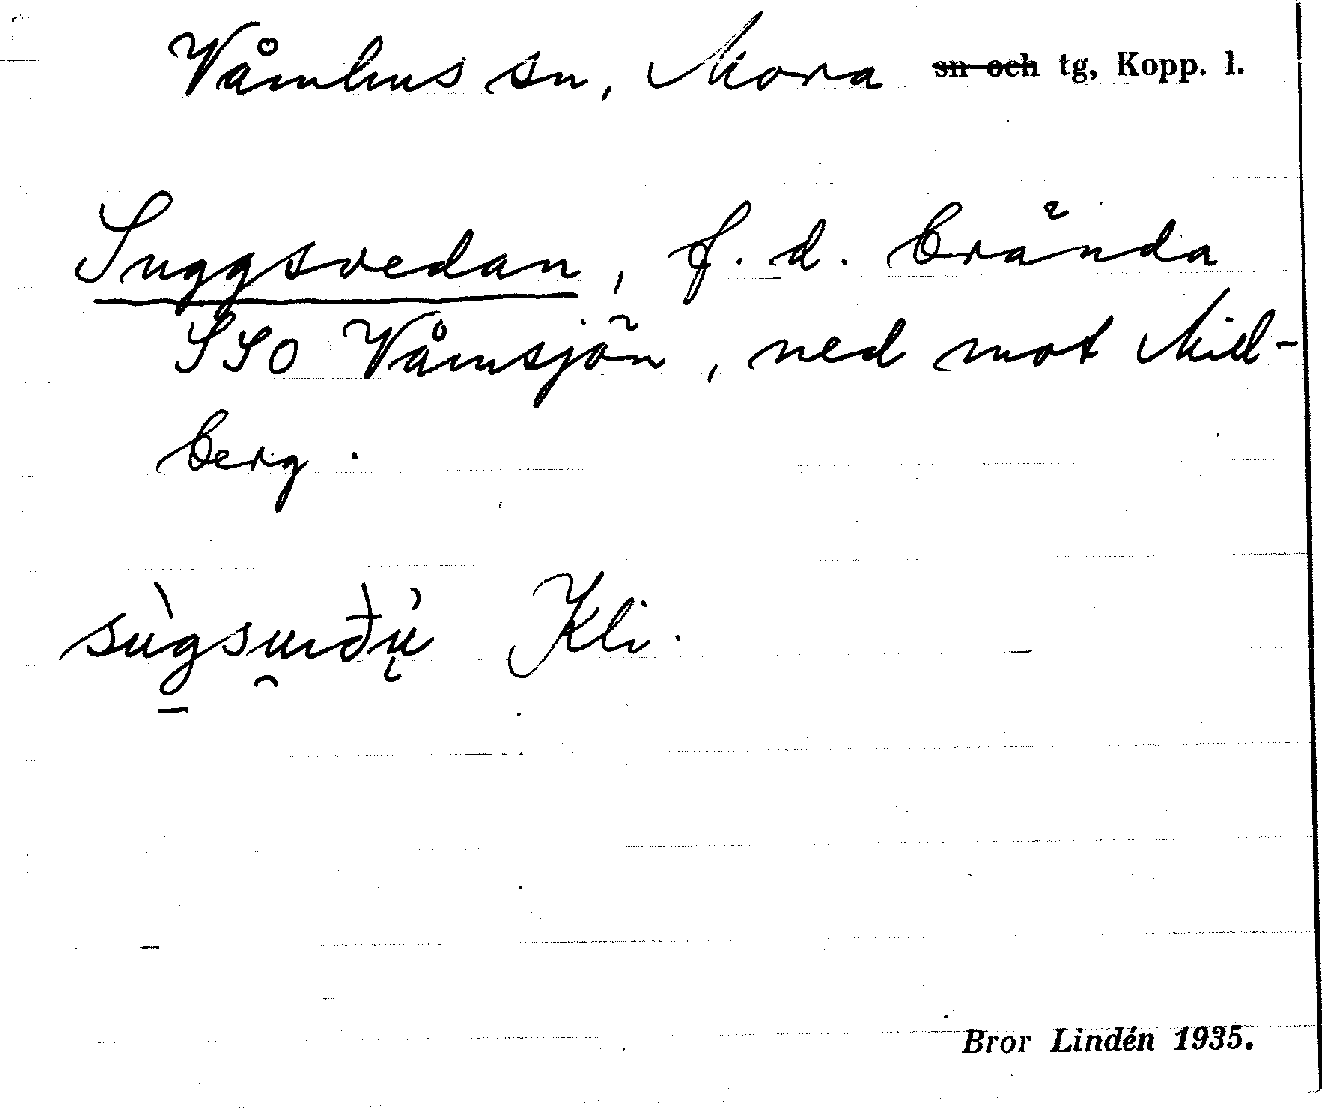 Våmhus sn, Mora sn och tg, Kopp. l.
Suggsvedan, f. d. brända
SSO Våmsjön, ned mot Mill-
berg.
sùg̠su̯ıðų̀ Kli.
Bror Lindén 1935.